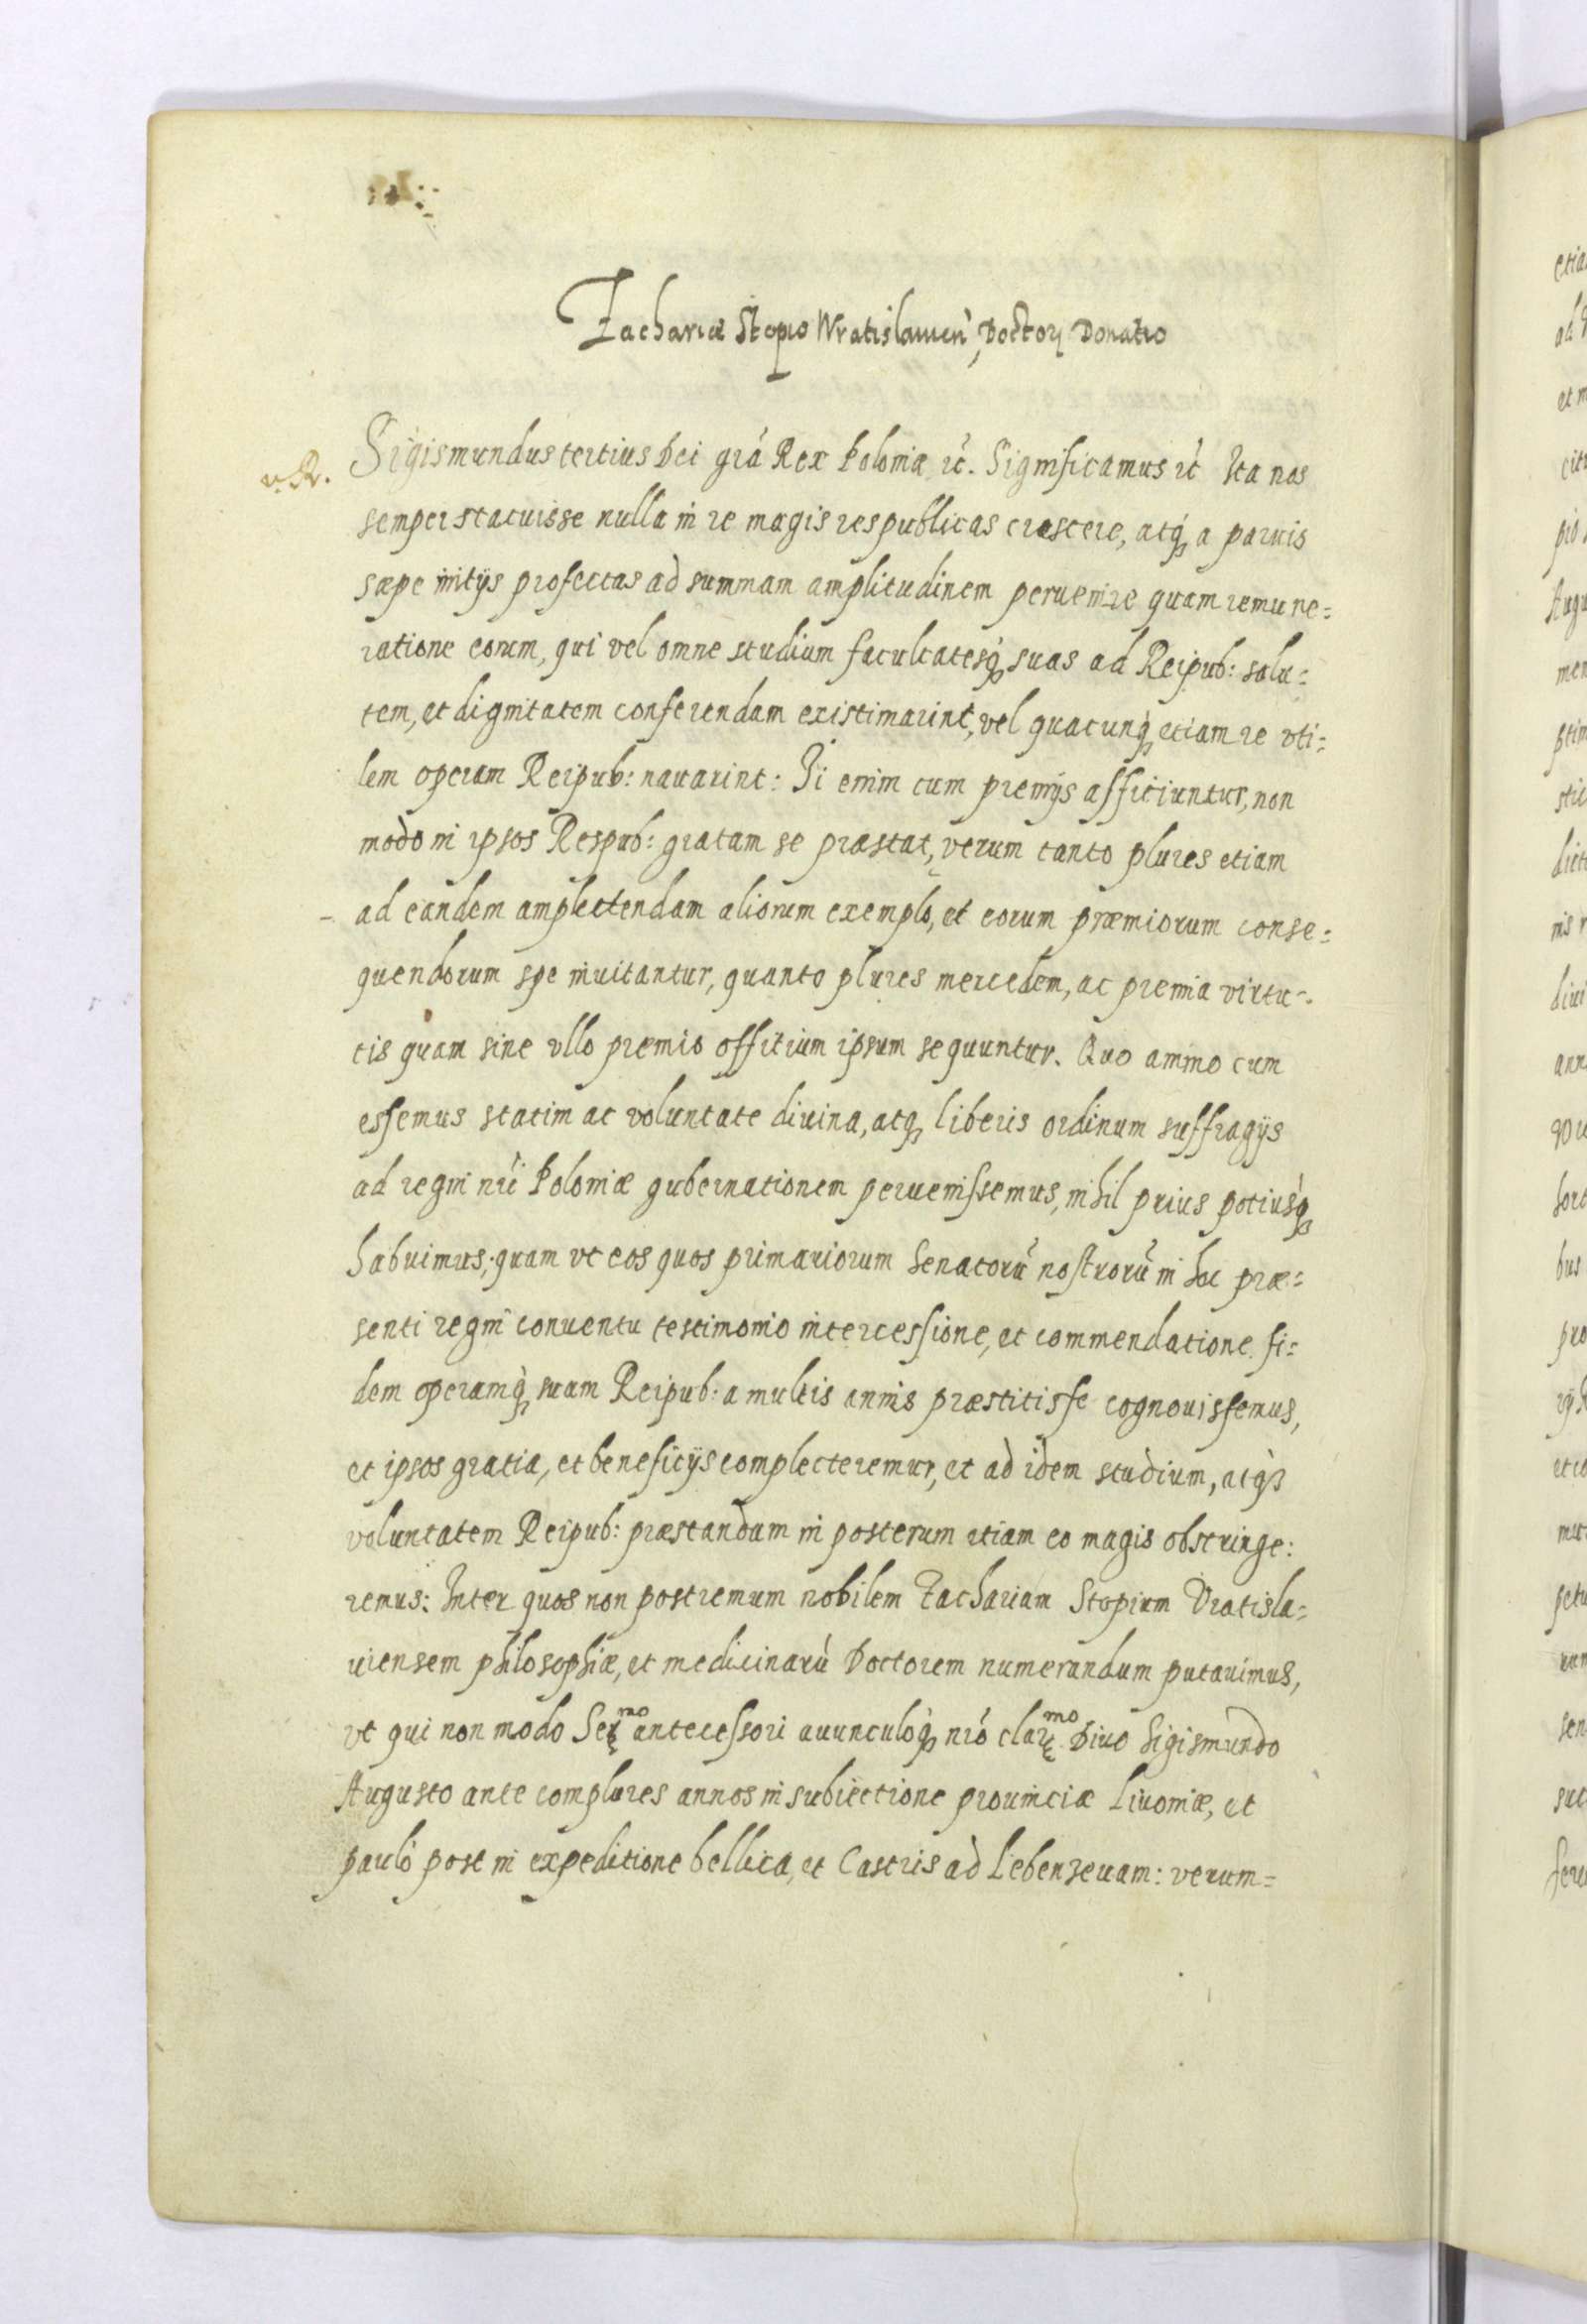 Zachariæ Stopio Wratislauień, Doctori Donatio
Sigismundus tertius Dei grá Rex Poloniæ ꝛć. Significamus ꝛć Ita nos
semper statuisse nulla in re magis respublicas crescere, atq́ a paruis
sæpe initijs profectas ad summam amplitudinem peruenire quam remune=
ratione eorum, qui vel omne studium facultatesq́ suas ad Reipub: salu=
tem, et dignitatem conferendam existimarint, vel quacunq́ etiam re vti=
lem operam Reipub: nauarint: Ii enim cum premijs afficiuntur, non
modo in ipsos Respub: gratam se præstat, verum tanto plures etiam
ad eandem amplectendam aliorum exemplo, et eorum præmiorum conse=
quendorum spe inuitantur, quanto plures mercedem, ac premia virtu=
tis quam sine vllo premio offitium ipsum sequuntur. Quo animo cum
essemus statim ac voluntate diuina, atq́ liberis ordinum suffragijs
ad regni nŕi Poloniæ gubernationem peruenissemus, nihil prius potiusq́
habuimus, quam vt eos quos primariorum Senatorũ nostrorũ in hoc præ=
senti regni conuentu testimonio intercessione, et commendatione fi=
dem operamq́ suam Reipub: a multis annis præstitisse cognouissemus,
et ipsos gratia, et beneficijs complecteremur, et ad idem studium, atq́
voluntatem Reipub: præstandam in posterum etiam eo magis obstringe:
remus: Inter quos non postremum nobilem Zachariam Stopium Vratisla=
uiensem philosophiæ, et medicinarũ Doctorem numerandum putauimus,
vt qui non modo Sermo antecessori auunculoq́ nŕo clarmo Diuo Sigismundo
Augusto ante complures annos in subiectione prouinciæ Liuoniæ, et
paulò post in expeditione bellica, et Castris ad Lebenzeuam: verum=